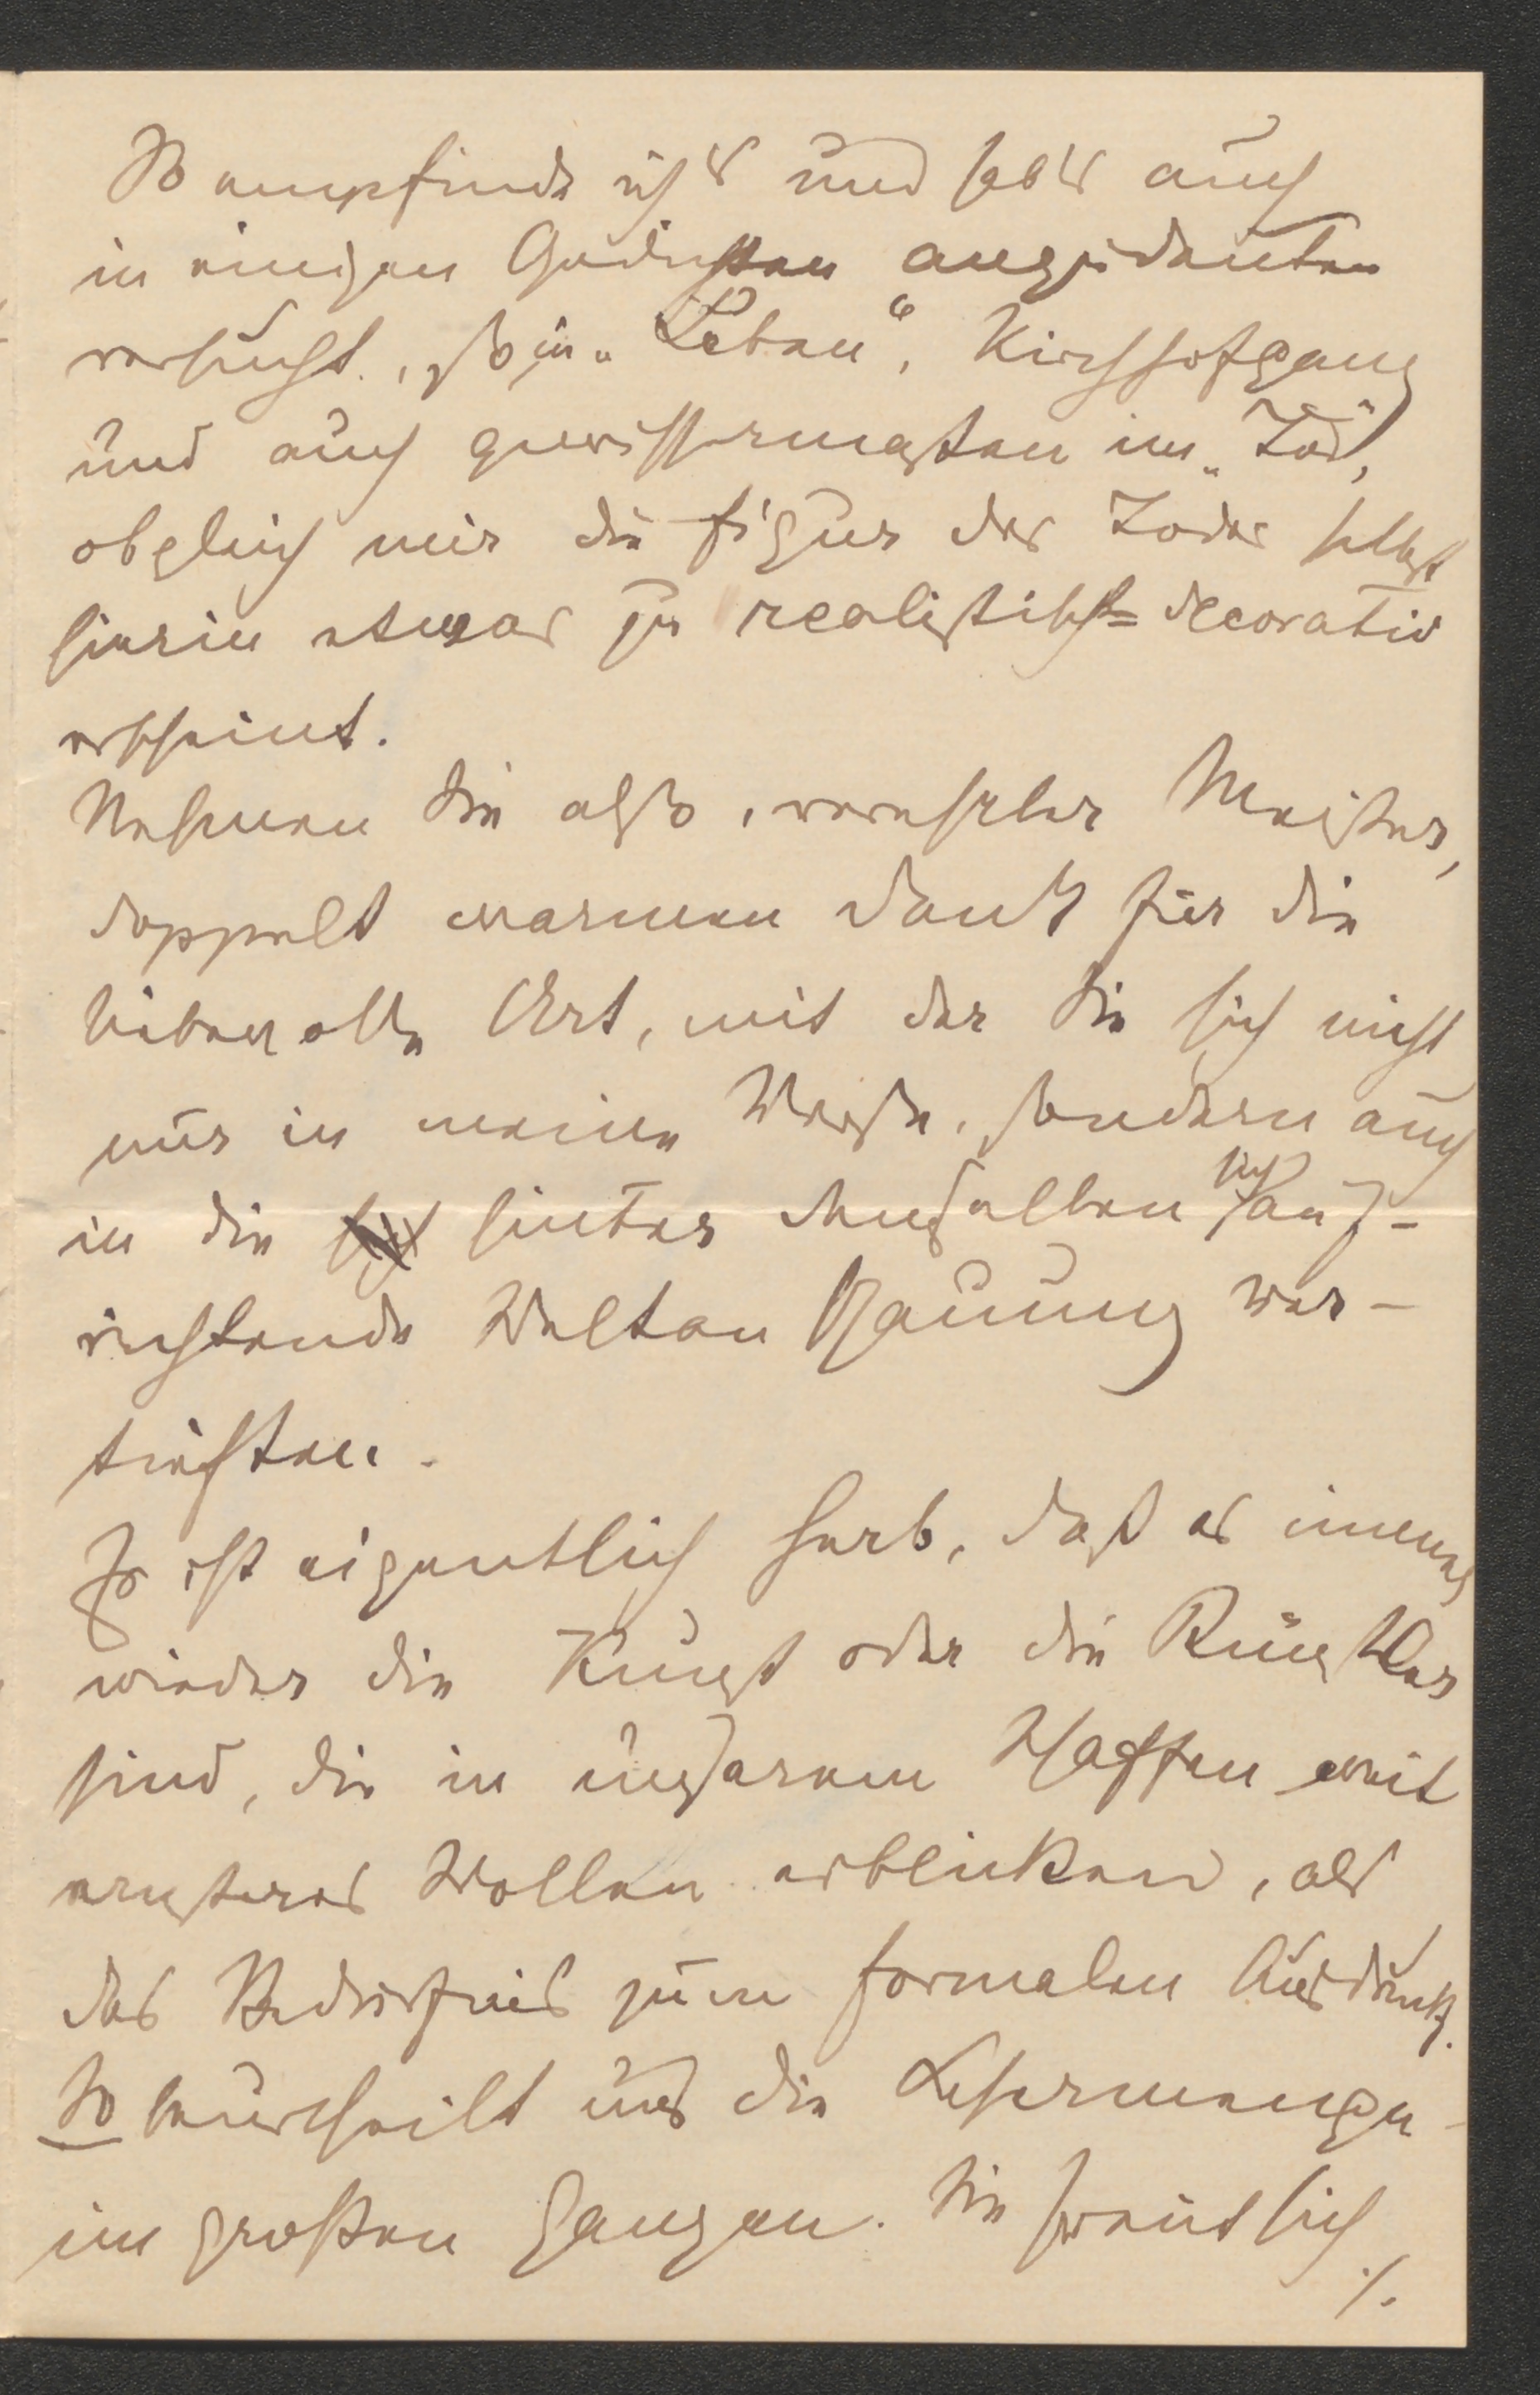 So empfinde ich's und hab's auch
in einigen Gedichten anzudeuten
versucht, so in „Leben“, Kirchhofgang
und auch gewissermaßen im „Tod“,
obgleich mir die Figur des Todes selbst
hierin etwas zu realistisch=decorativ
erscheint.
Nehmen Sie also, verehrter Meister,
doppelt warmen Dank für die
liebevolle Art, mit der Sie sich nicht
nur in meine Werke, sondern auch
in die hinter denselben sich auf-
richtende Weltanschauung ver-
tieften.
Es ist eigentlich herb, daß es immer
wieder die Kunst oder die Künstler
sind, die in unserem Schaffen weit
ernsteres Wollen erblicken, als
das Bedürfnis zum formalen Ausdruck.
So beurtheilt uns die Lesermenge
im großen Ganzen. Sie freut sich
./.